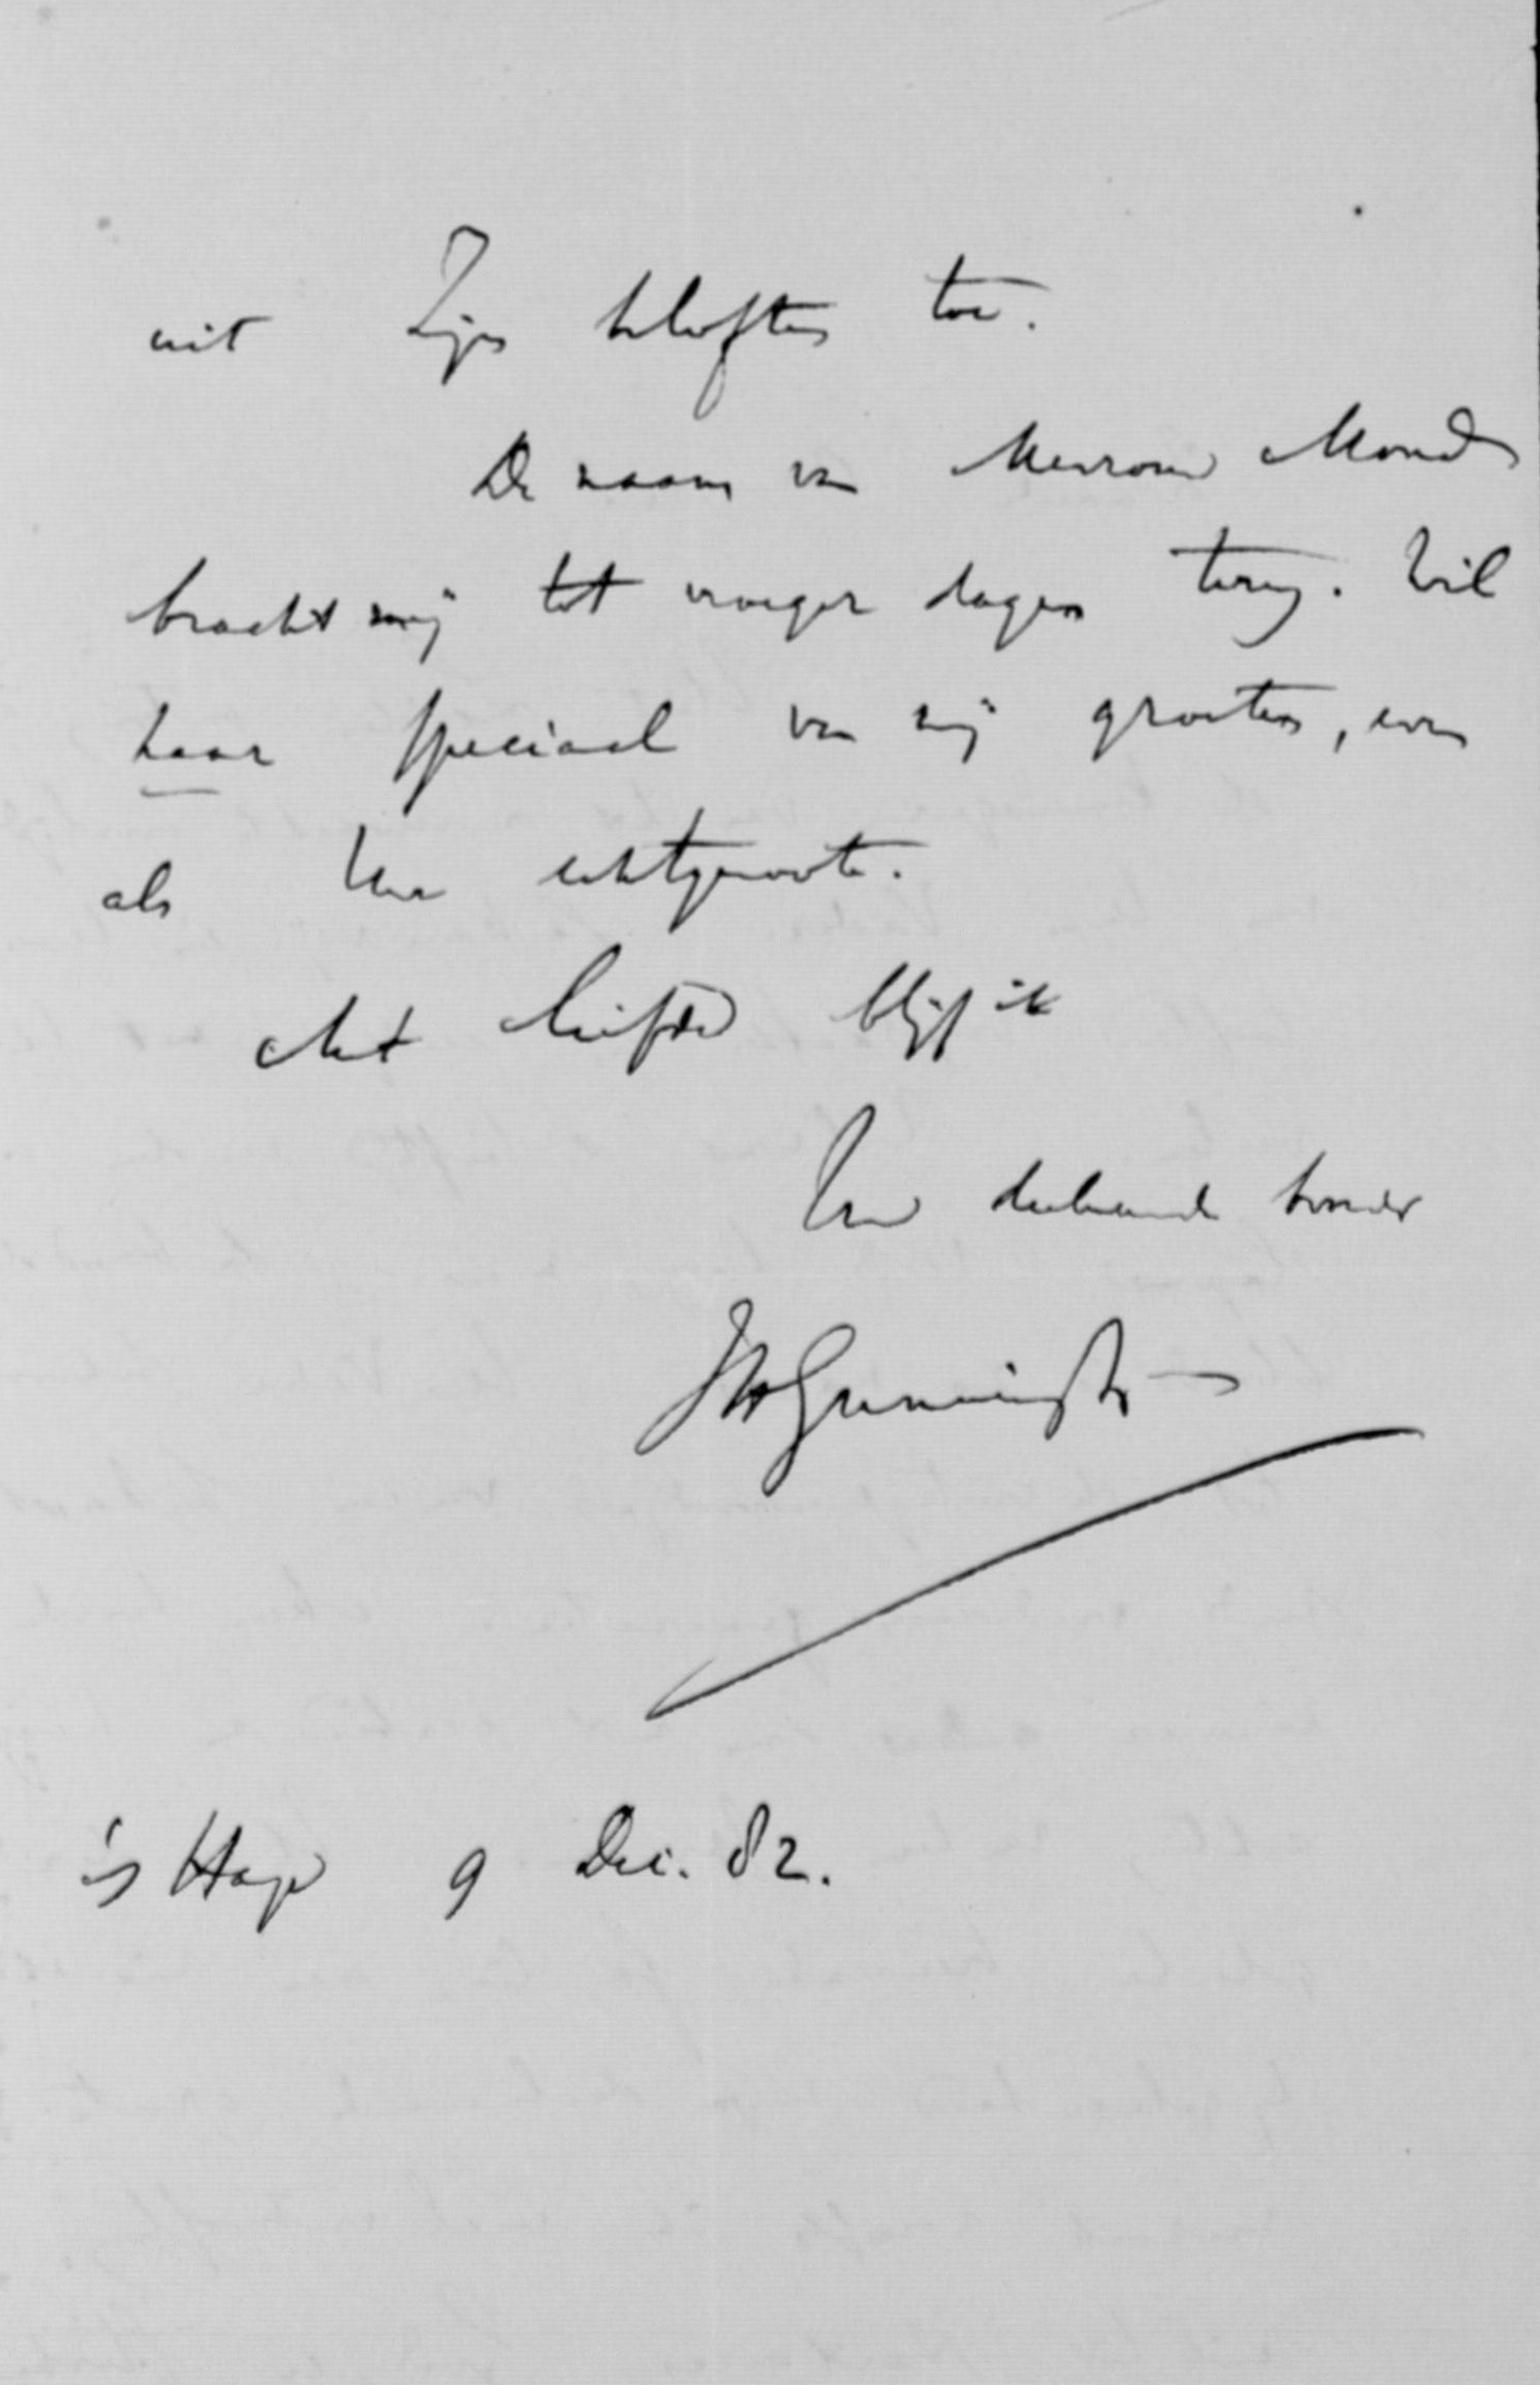 uit Zijn beloften toe.
De naam van Mevrouw Mond
bracht mij tot vroeger dagen terug. Wil
haar speciaal van mij groeten, even
als Uw echtgenoote.
Met liefde blijf ik
Uw deelnemende broeder
JH Gunning Jr
's Hage 9 Dec. 82.